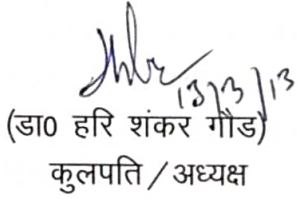 13/3/13
(डा0 हरि शंकर गौड)
कुलपति / अध्यक्ष